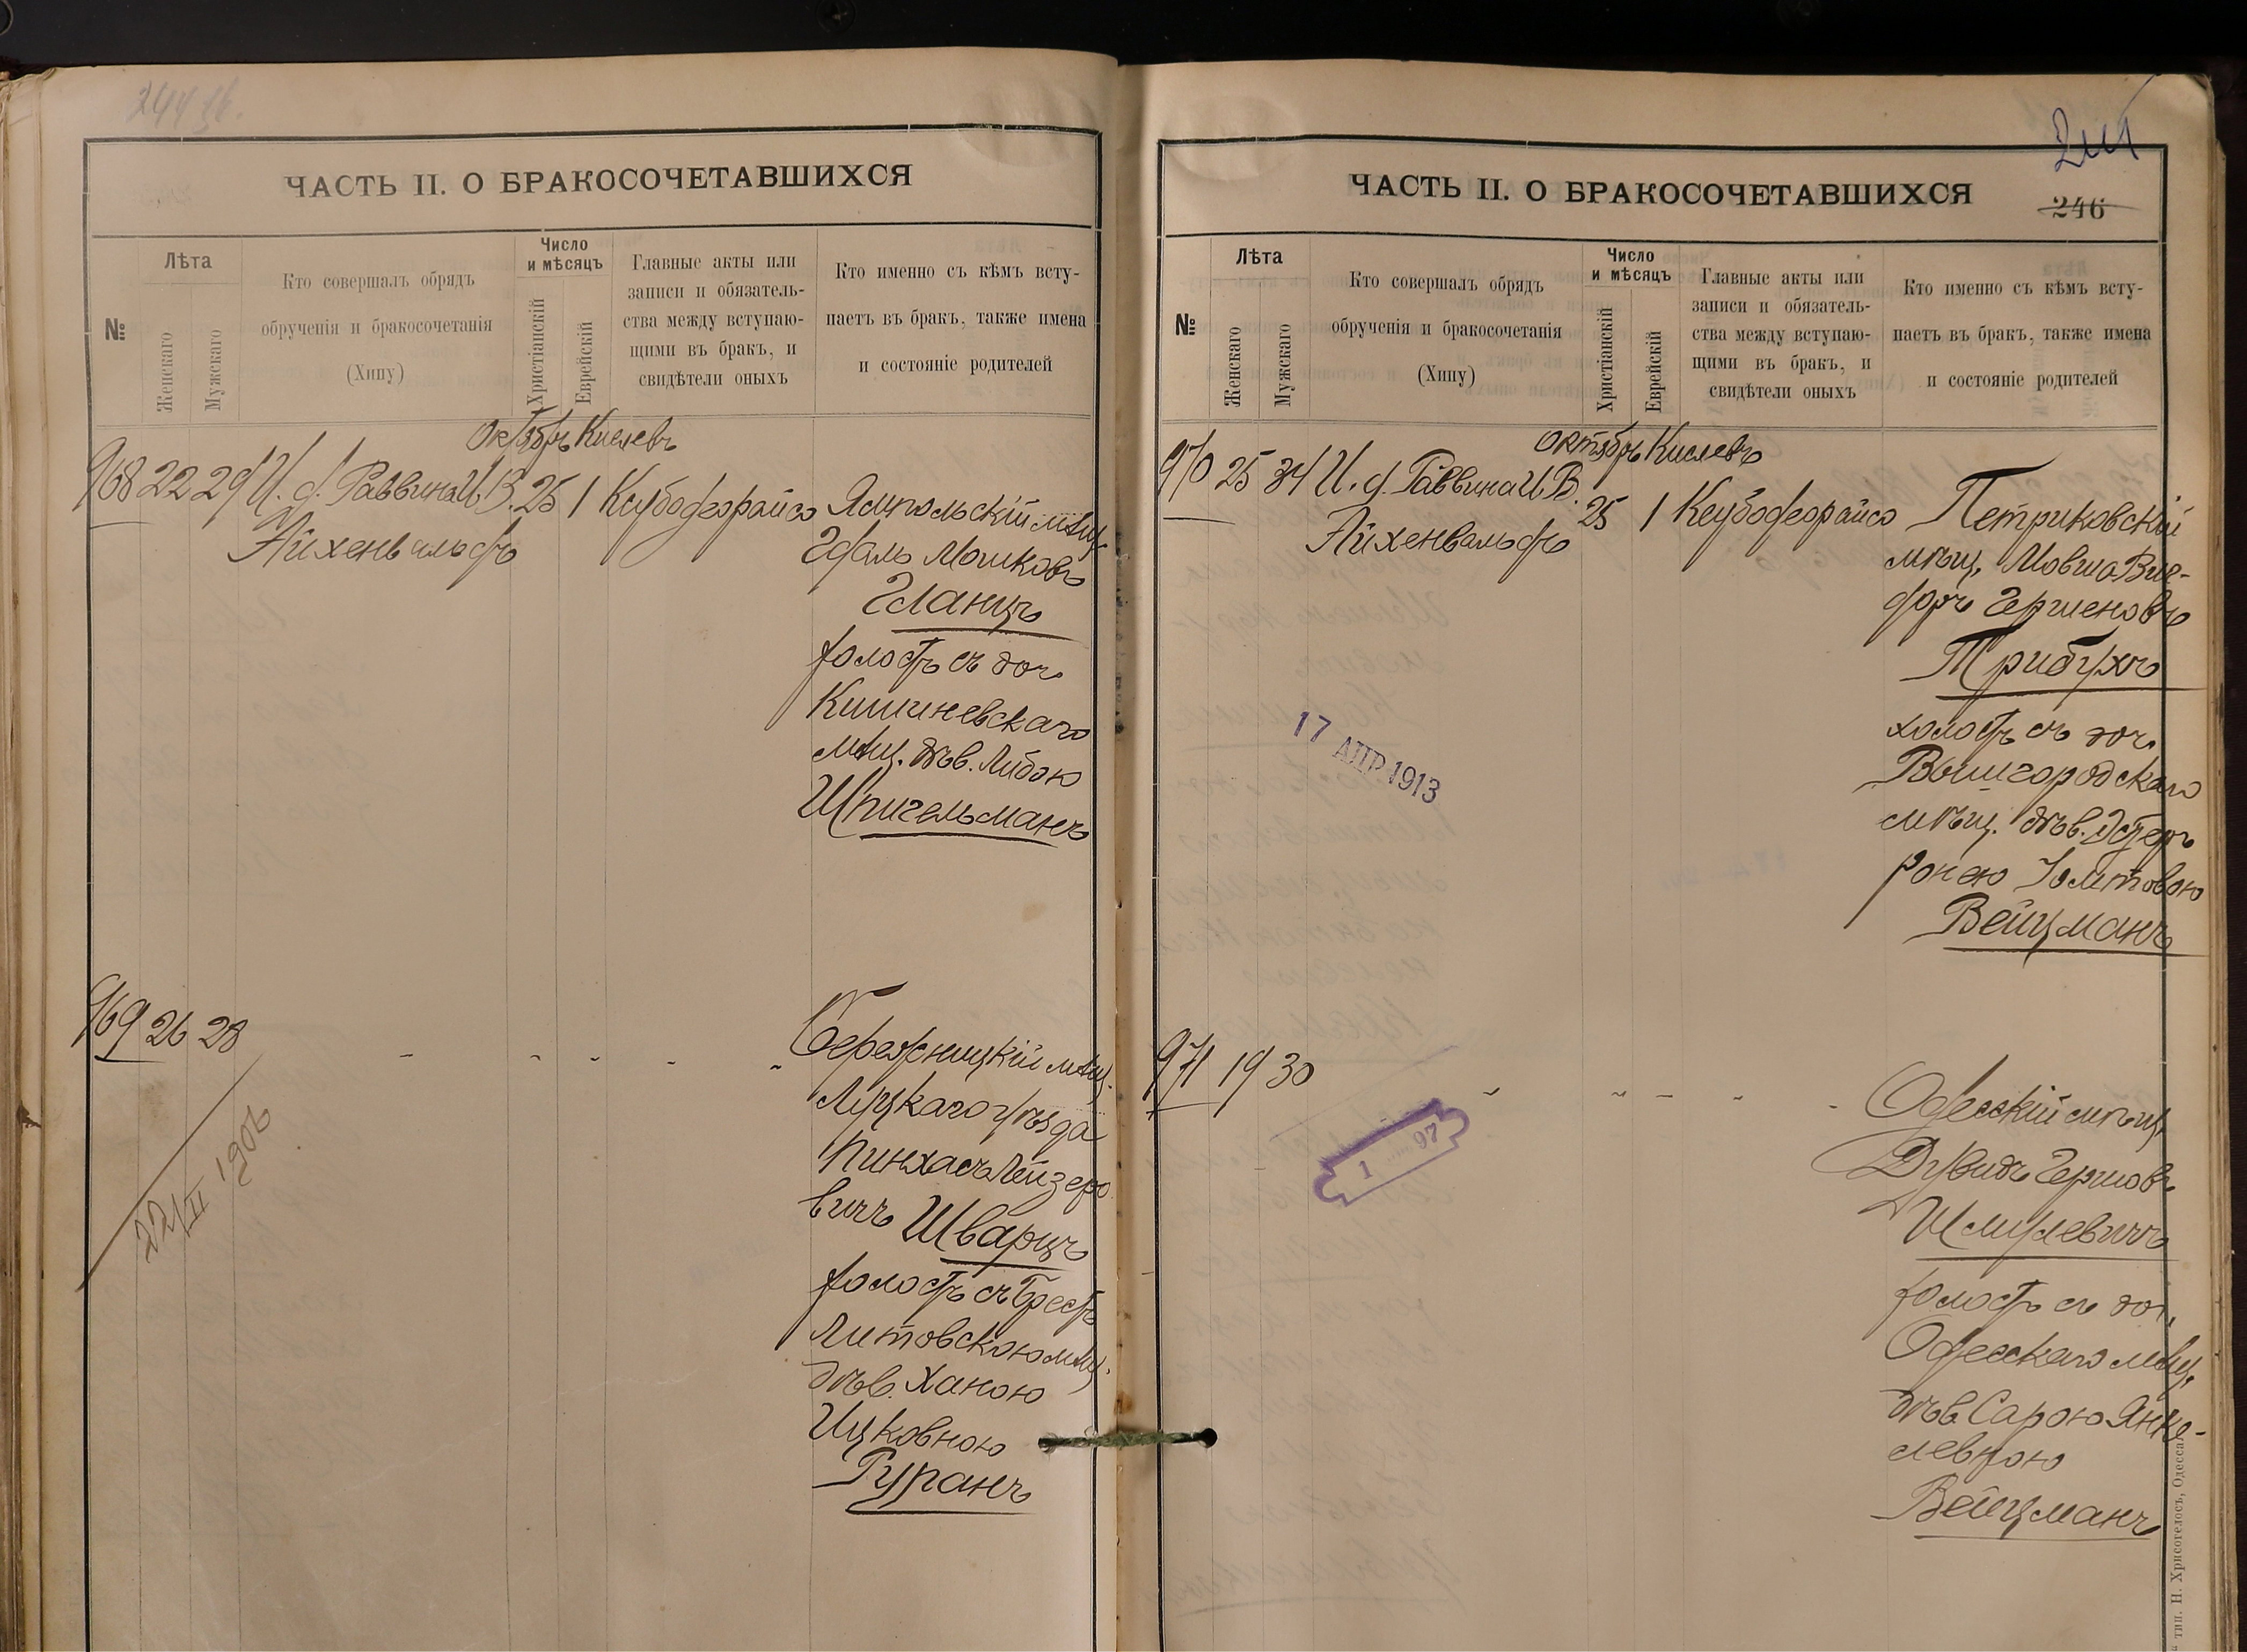 244 об.
ЧАСТЬ II. О БРАКОСОЧЕТАВШИХСЯ
№
Лѣта
Женскаго
Мужскаго
Кто совершалъ обрядъ
обрученія и бракосочетанія
(Хипу)
Число
и мѣсяцъ
Христіанскій
Еврейскій
Главные акты или
записи и обязатель-
ства между вступаю-
щими въ бракъ, и
свидѣтели оныхъ
Кто именно съ кѣмъ всту-
паетъ въ бракъ, также имена
и состояніе родителей
Октябрь Кислевъ
968 22 29 И. д. Раввина И. В. 25 1 Ксубодеорайсо Ямпольскій мѣщ.
Айхенвальдъ
Мошковъ
Гланцъ
холостъ съ доч.
Кишиневскаго
мѣщ. дѣв. Либою
Шпигельманъ
969 26 28 - - - - -
Бережницкій мѣщ.
Луцкаго уѣзда
Пинхасъ Лейзеро
вичъ Шварцъ
холостъ съ Брестъ
Литовскою мѣщ.
дѣв. Ханою
Ицковною
Гурланъ
22/II 1906
ЧАСТЬ II. О БРАКОСОЧЕТАВШИХСЯ
246
№
Лѣта
Женскаго
Мужскаго
Кто совершалъ обрядъ
обрученія и бракосочетанія
(Хипу)
Число
и мѣсяцъ
Христіанскій
Еврейскій
Главные акты или
записи и обязатель-
ства между вступаю-
щими въ бракъ, и
свидѣтели оныхъ
Кто именно съ кѣмъ всту-
паетъ въ бракъ, также имена
и состояніе родителей
Октябрь Кислевъ
970 25 34 И. д. Раввина И. В. 25 1 Ксубодеорайсо Петриковскій
Айхенвальдъ
мѣщ. Мовша Виг-
доръ Гершеновъ
Трибухъ
холостъ съ доч.
Вышгородскаго
мѣщ. дѣв. Эстеръ
Іомтовою
Вейцманъ
17 АПР 1913
971 19 30 - - - - -
Одесскій мѣщ.
Дувидъ Гершовъ
Шмулевичъ
холостъ съ доч.
Одесскаго мѣщ.
дѣв. Сарою Янке-
левною
Вейцманъ
1 97
тип. Н. Хрисогелосъ, Одесса.